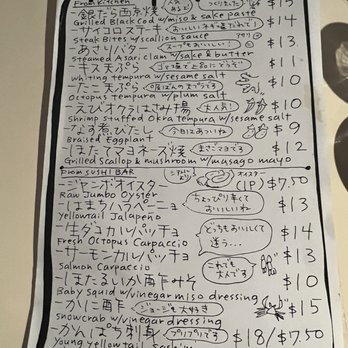 From KITCHEN
銀だら西京焼 $15
Grilled Black Cod w/miso & sake paste
サイコロステーキ $14
Steak Bites w/scallion sauce
あさりバター スープもおいしい! $13
Steamed Asari clam w/sake & butter
キス天ぷら $11
whiting tempura w/sesame salt
たこ天ぷら $10
Octopus tempura w/plum salt
えびオクラはさみ揚 大人気! $10
Shrimp stuffed Okra tempura w/sesame salt
なす煮びたし $9
Braised Eggplant
ほたてマヨネーズ焼 $12
Grilled Scallop & mushroom w/masago mayo
From SUSHI BAR
ジャンボオイスター (1P) $7.50
Raw Jumbo Oyster
はまちハラペーニョ ちょっぴり辛くておいしいね $13
Yellowtail Jalapeño
生ダコカルパッチョ $14
Fresh Octopus Carpaccio
サーモンカルパッチョ $13
Salmon Carpaccio
ほたるいか酢みそ $10
Baby Squid w/vinegar miso dressing
かに酢 $15
snowcrab w/vinegar dressing
かんぱち刺身 $18/$7.50
Young yellowtail